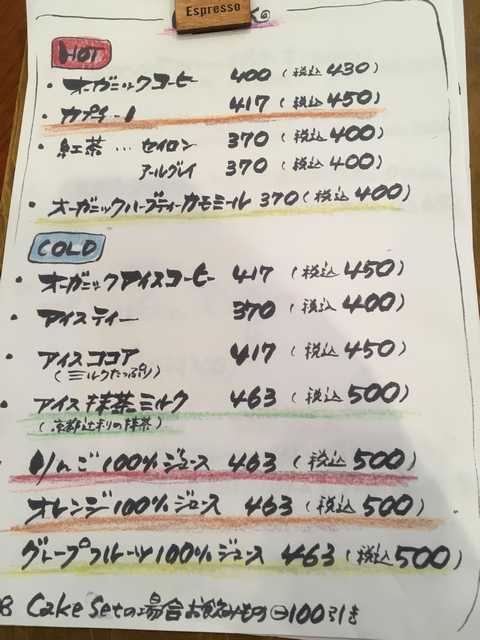 Espresso
HOT
・オーガニックコーヒー 400 (税込430)
・カプチーノ 417 (税込450)
・紅茶…セイロン 370 (税込400)
アールグレイ 370 (税込400)
・オーガニックハーブティーカモミール 370 (税込400)
COLD
・オーガニックアイスコーヒー 417 (税込450)
・アイスティー 370 (税込400)
・アイスココア 417 (税込450)
(ミルクたっぷり)
・アイス抹茶ミルク 463 (税込500)
(京都辻利の抹茶)
・りんご100%ジュース 463 (税込500)
オレンジ100%ジュース 463 (税込500)
グレープフルーツ100%ジュース 463 (税込500)
Cake Setの場合お飲みもの⊖100引き